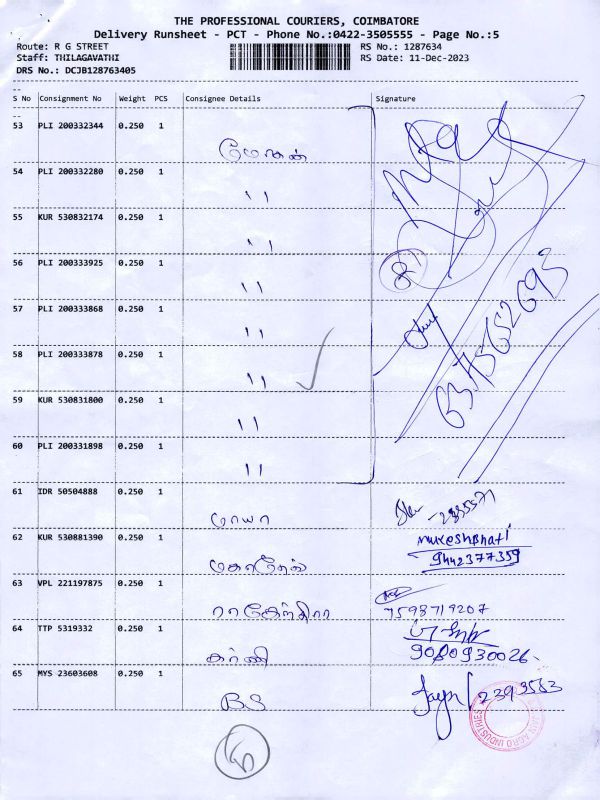 THE PROFESSIONAL COURIERS, COIMBATORE
Delivery Runsheet - PCT - Phone No.:0422-3505555 - Page No.:5
Route: R G STREET RS No.: 1287634
Staff: THILAGAVATHI RS Date: 11-Dec-2023
DRS No.: DCJB128763405
S No Consignment No Weight PCS Consignee Details Signature
53 PLI 200332344 0.250 1
மோகன்
54 PLI 200332280 0.250 1
11
55 KUR 530832174 0.250 1
11
56 PLI 200333925 0.250 1
11
8
57 PLI 200333868 0.250 1
11
58 PLI 200333878 0.250 1
11
59 KUR 530831800 0.250 1
11
60 PLI 200331898 0.250 1
11
61 IDR 50504888 0.250 1
மாயா
62 KUR 530881390 0.250 1
MukeshBhati
9442377359
63 VPL 221197875 0.250 1
7598719207
64 TTP 5319332 0.250 1
9080930026
65 MYS 23603608 0.250 1
BS
2393563
AGRO INDUSTRIES